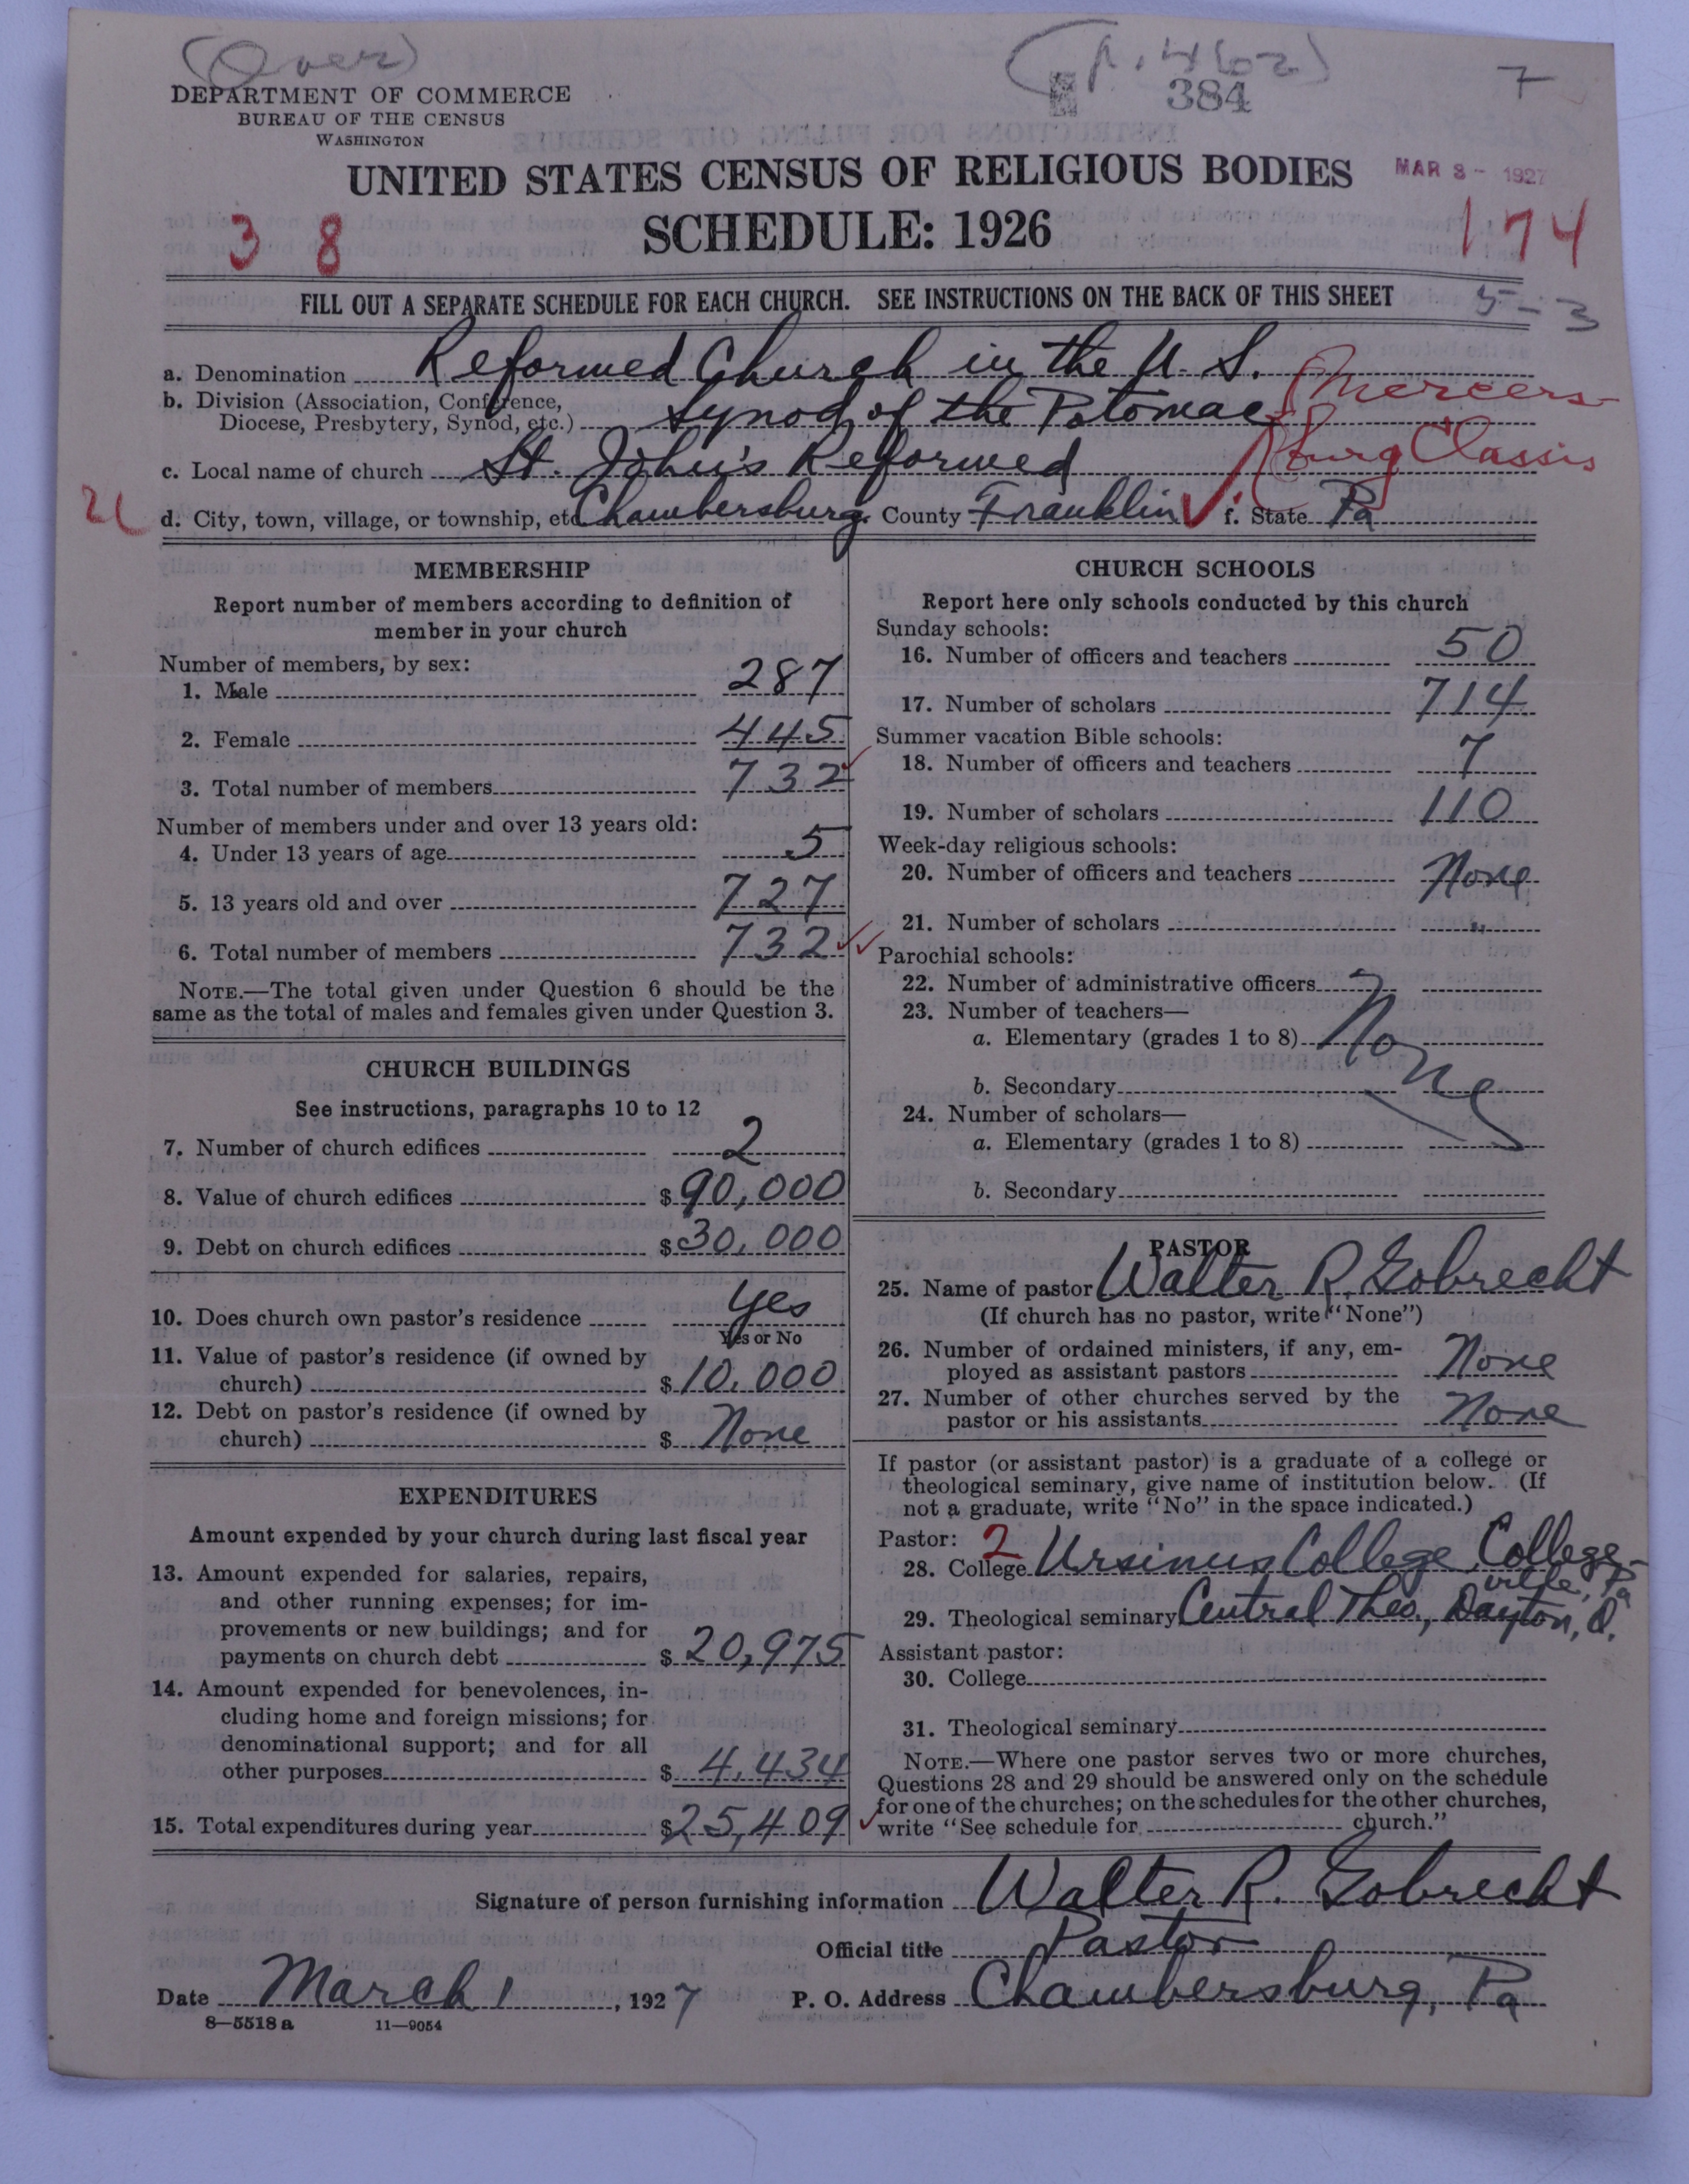 (Over)
384
7
DEPARTMENT OF COMMERCE
BUREAU OF THE CENSUS
WASHINGTON
UNITED STATES CENSUS OF RELIGIOUS BODIES
MAR 8 - 1927
SCHEDULE: 1926
3 8
174
FILL OUT A SEPARATE SCHEDULE FOR EACH CHURCH. SEE INSTRUCTIONS ON THE BACK OF THIS SHEET
5-3
a. Denomination Reformed Church in the U. S.
b. Division (Association, Conference, Diocese, Presbytery, Synod, etc.) Synod of the Potomac
Mercers-
burg Classis
c. Local name of church St. John's Reformed
d. City, town, village, or township, etc Chambersburg County Franklin f. State Pa
MEMBERSHIP
Report number of members according to definition of
member in your church
Number of members, by sex:
1. Male 287
2. Female 445
3. Total number of members 732
Number of members under and over 13 years old:
4. Under 13 years of age 5
5. 13 years old and over 727
6. Total number of members 732
NOTE.—The total given under Question 6 should be the
same as the total of males and females given under Question 3.
CHURCH BUILDINGS
See instructions, paragraphs 10 to 12
7. Number of church edifices 2
8. Value of church edifices $ 90,000
9. Debt on church edifices $ 30,000
10. Does church own pastor's residence Yes
Yes or No
11. Value of pastor's residence (if owned by
church) $ 10,000
12. Debt on pastor's residence (if owned by
church) $ None
EXPENDITURES
Amount expended by your church during last fiscal year
13. Amount expended for salaries, repairs,
and other running expenses; for im-
provements or new buildings; and for
payments on church debt $ 20,975
14. Amount expended for benevolences, in-
cluding home and foreign missions; for
denominational support; and for all
other purposes $ 4,434
15. Total expenditures during year $ 25,409
CHURCH SCHOOLS
Report here only schools conducted by this church
Sunday schools:
16. Number of officers and teachers 50
17. Number of scholars 714
Summer vacation Bible schools:
18. Number of officers and teachers 7
19. Number of scholars 110
Week-day religious schools:
20. Number of officers and teachers None
21. Number of scholars "
Parochial schools:
22. Number of administrative officers
23. Number of teachers—
a. Elementary (grades 1 to 8) None
b. Secondary
24. Number of scholars—
a. Elementary (grades 1 to 8)
b. Secondary
PASTOR
25. Name of pastor Walter R. Gobrecht
(If church has no pastor, write "None")
26. Number of ordained ministers, if any, em-
ployed as assistant pastors None
27. Number of other churches served by the
pastor or his assistants None
If pastor (or assistant pastor) is a graduate of a college or
theological seminary, give name of institution below. (If
not a graduate, write "No" in the space indicated.)
Pastor: 2
28. College Ursinus College, College-
ville, Pa
29. Theological seminary Central Theo., Dayton, O.
Assistant pastor:
30. College
31. Theological seminary
NOTE.—Where one pastor serves two or more churches,
Questions 28 and 29 should be answered only on the schedule
for one of the churches; on the schedules for the other churches,
write "See schedule for church."
Signature of person furnishing information Walter R. Gobrecht
Official title Pastor
Date March 1, 1927 P. O. Address Chambersburg, Pa
8—5518 a 11—9054